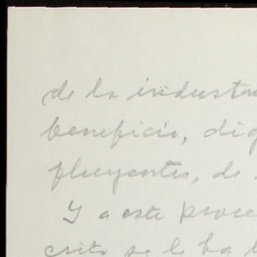 de la industri
beneficio, dig
fluyentes, de
Y a este proce
crito se le ha